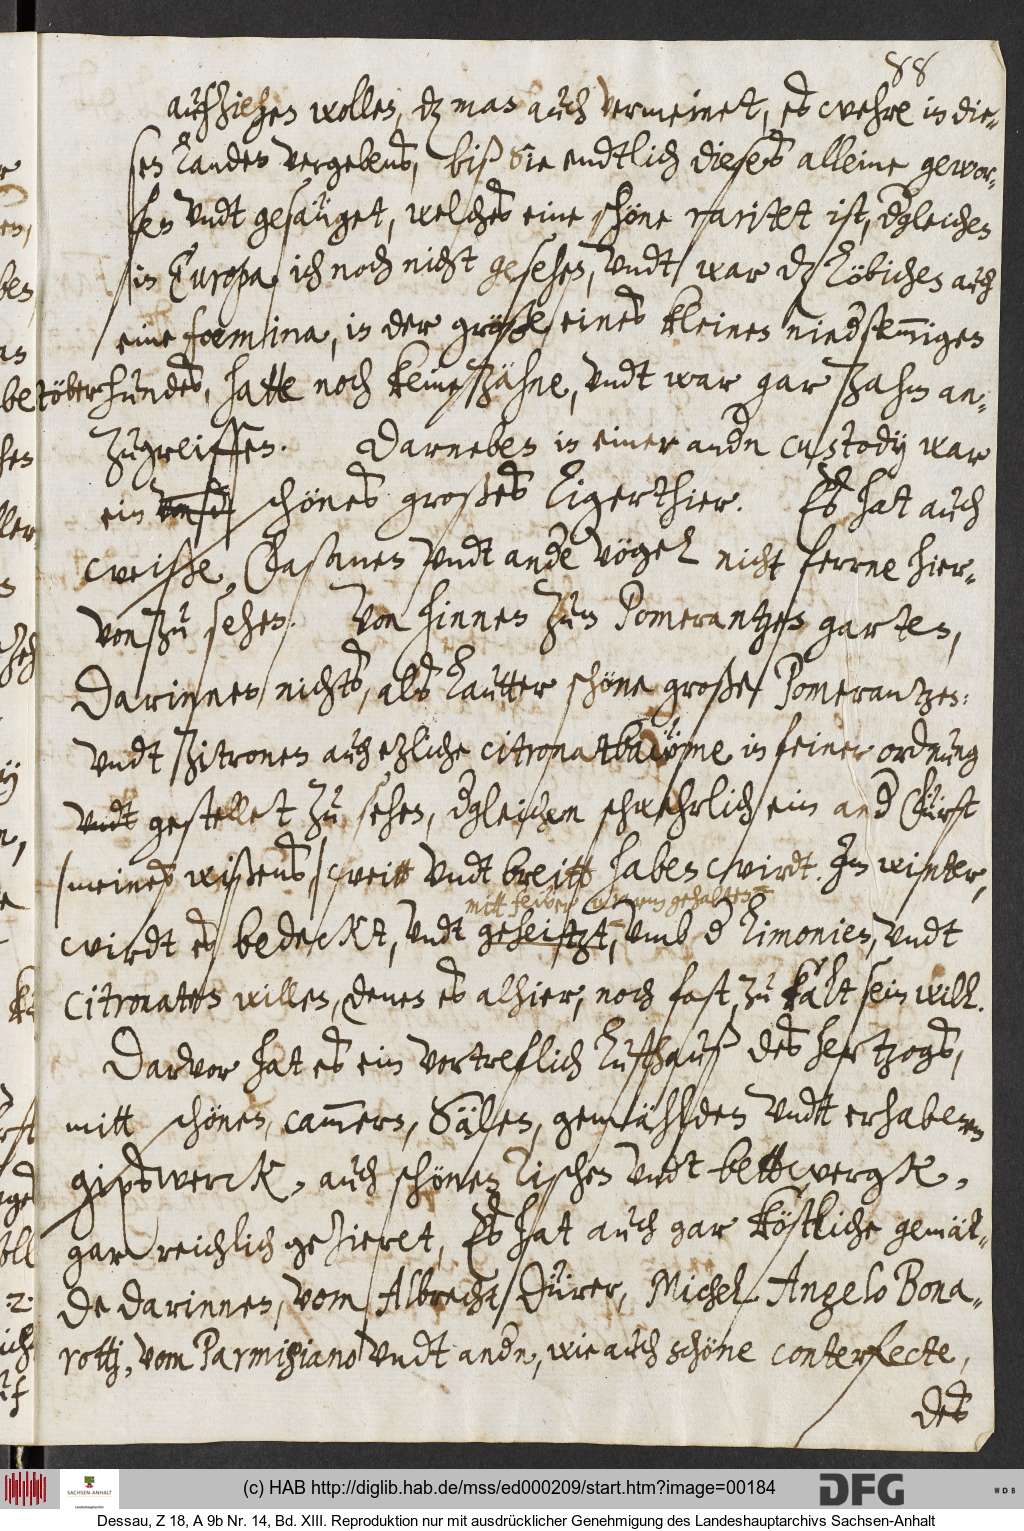 88
aufziehen wollen, dz man auch vermeinet, es wehre in die-
sen Landen vergebens, biß Sie endtlich dieses alleine gewor-
fen vndt gesäuget, welches eine schöne raritet ist, dgleichen
in Europa ich noch nicht gesehen, vndt war dz Löbichen auch
eine foemina, in der größe eines kleinen niedstem̄igen
töberhundes, hatte noch keine Zähne, vndt war gar Zahm an-
Zugreiffen. Darneben in einer andn custody war
ein schönes großes Tigerthier. Es hat auch
weiße Phasanen vndt ande vögel nicht ferrne hier-
von zu sehen. Von hinnen Zum Pomerantzen garten,
Darinnen nichts, als lautter schöne große Pomerantzen:
vndt Zitronen auch ezliche citronatbäüme in feiner ordnung
vndt gestellet Zu sehen, dgleichen schwehrlich ein and Fürst
/meines wißens/ weitt vndt breitt haben wirdt. Im winter,
mitt fewer warm gehalten
wirdt es bedeckt, vndt geheitzt, vmb d Limonien, vndt
Citronaten willen, denen es alhier, noch fast zu kalt sein will.
Darvor hat es ein vortreflich Lusthauß des hertzogs,
mitt schönen, cam̄ern, Sälen, gemählden vndt erhabenem
gipswerck, auch schönen Tischen vndt bettwergk,
gar reichlich gezieret, Es hat auch gar köstliche gemäl-
de darinnen, vom Albrecht Dürer, Michel Angelo Bona-
rottj, vom Parmisiano vndt andn, wie auch schöne conterfecte,
des
(c) HAB http://diglib.hab.de/mss/ed000209/start.htm?image=00184
DFG
WDB
SACHSEN-ANHALT
Dessau, Z 18, A 9b Nr. 14, Bd. XIII. Reproduktion nur mit ausdrücklicher Genehmigung des Landeshauptarchivs Sachsen-Anhalt